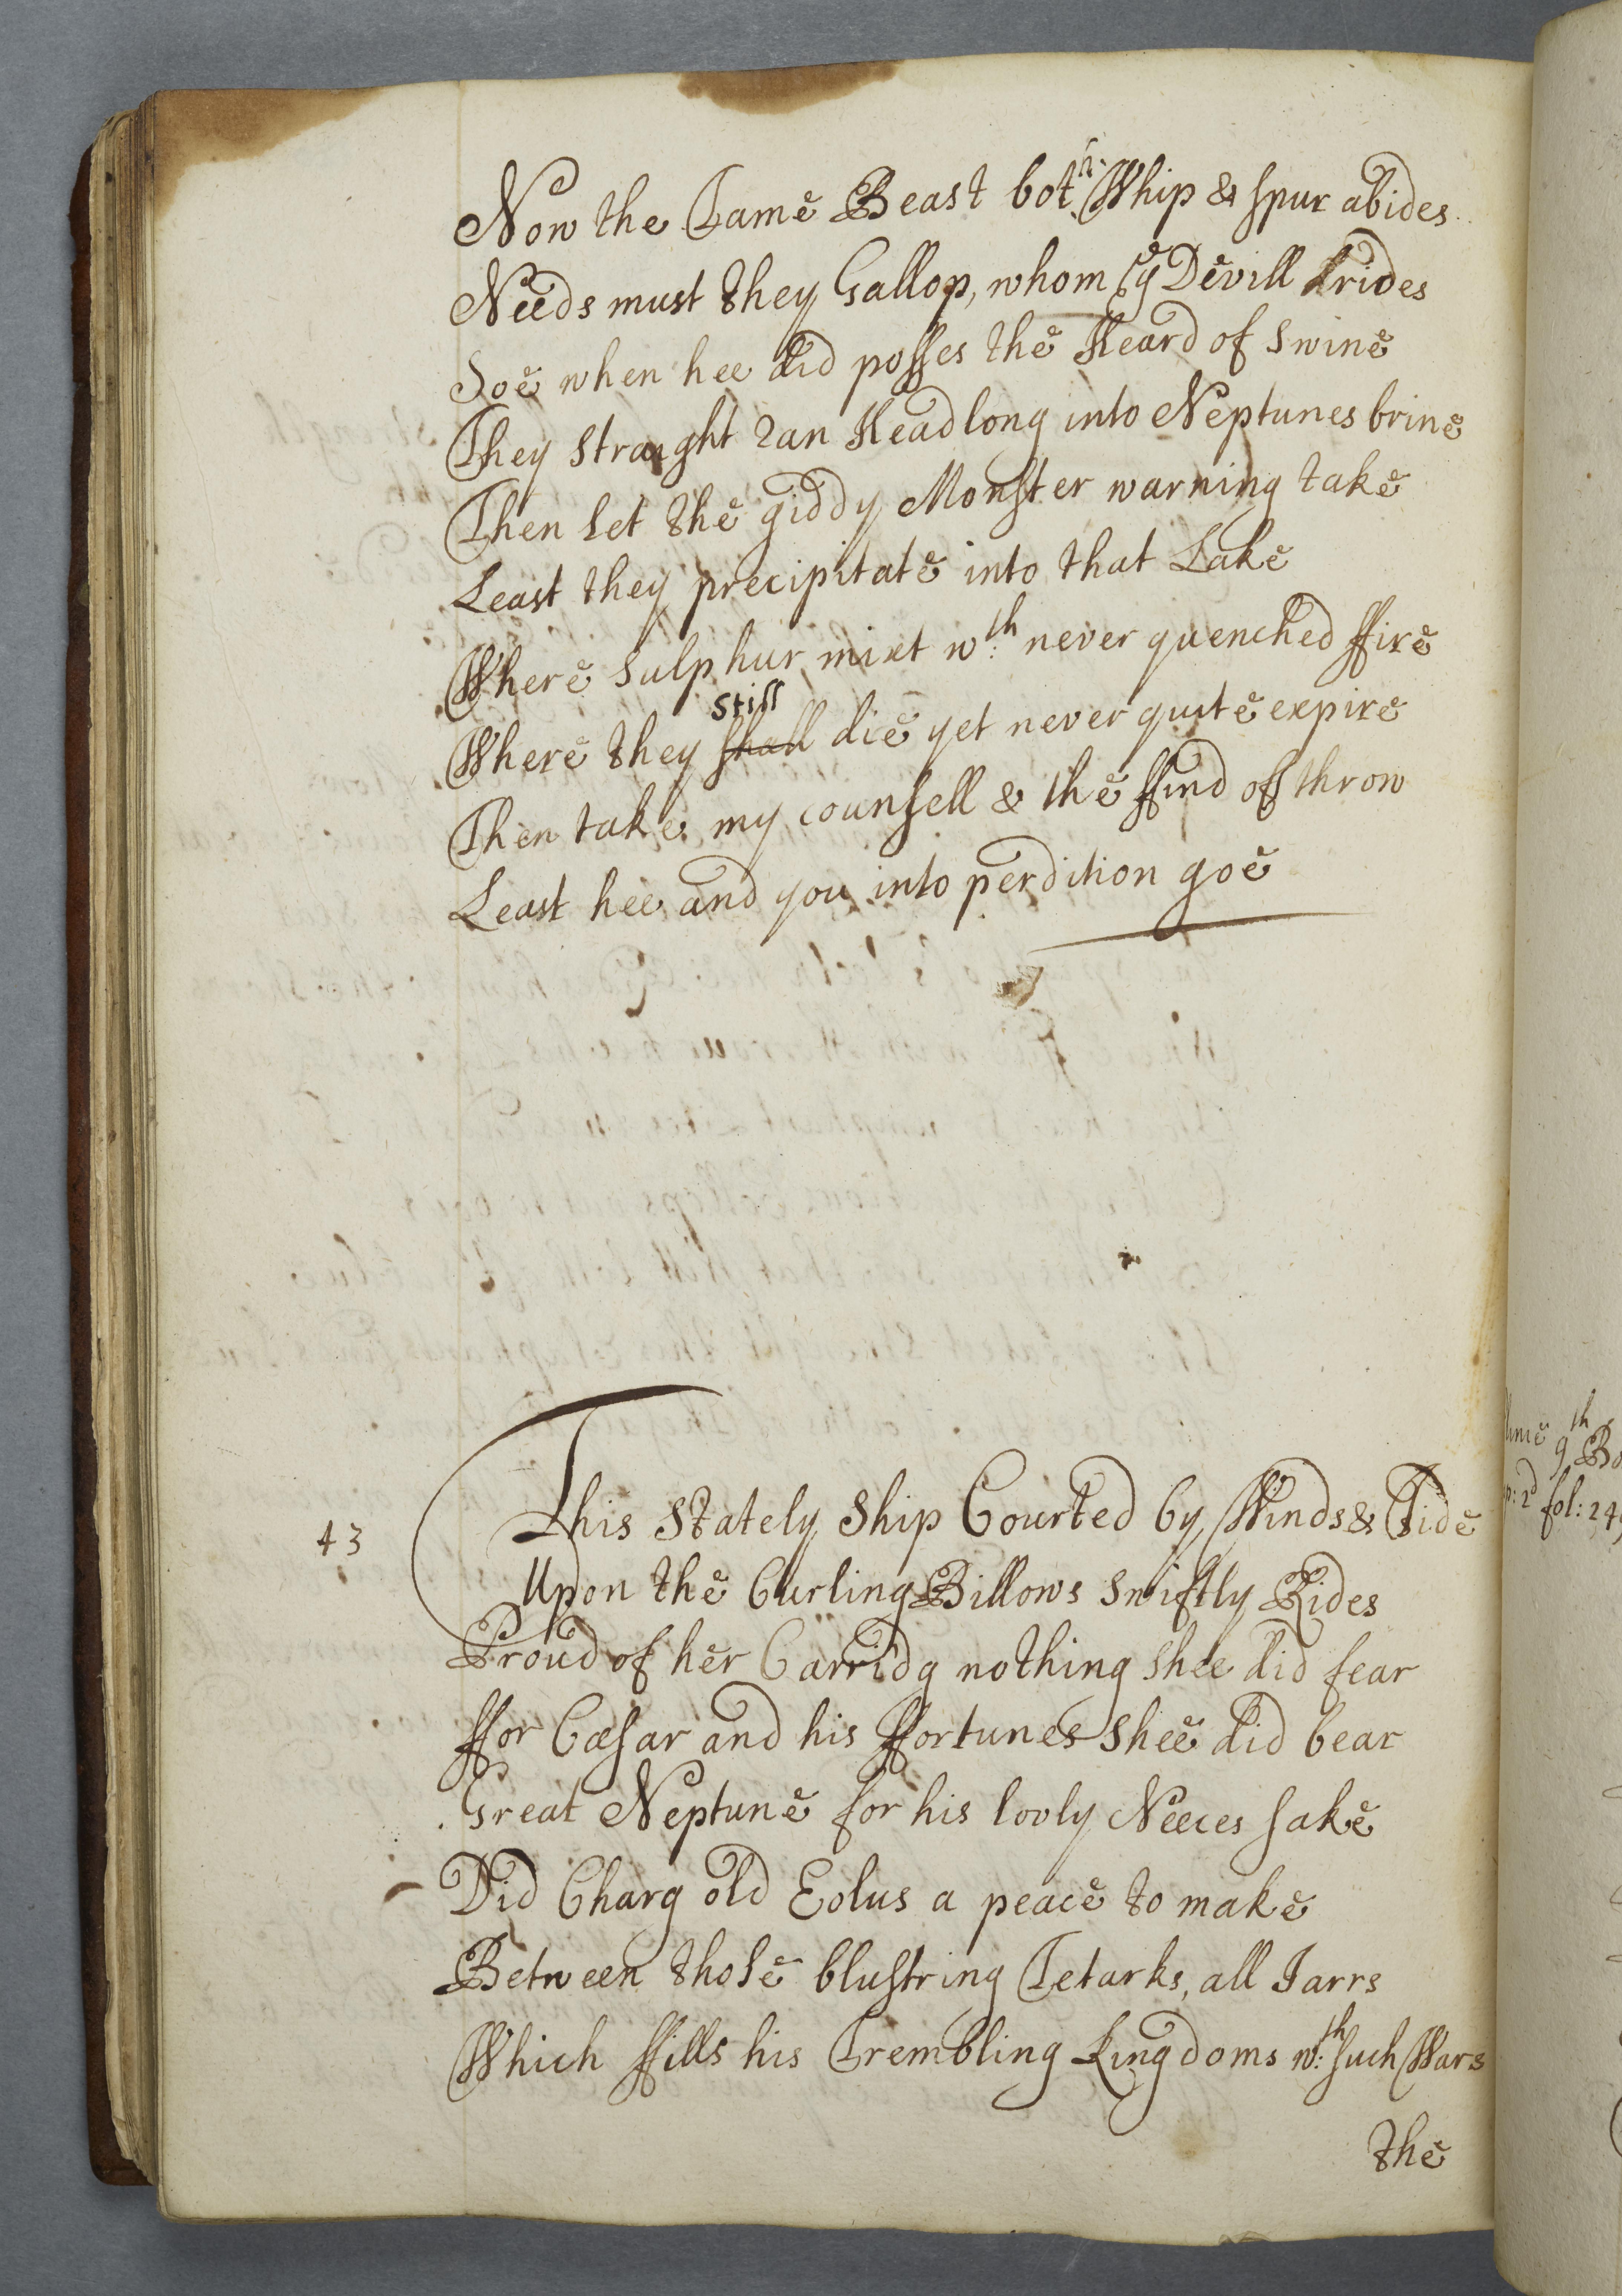 Now the Tame Beast both Whip & spur abides
Needs must they Gallop, whom ye Devill rides
Soe when hee did posses the Heard of Swine
They straight ran Headlong into Neptunes brine
Then let the giddy Monster warning take
Least they precipitate into that Lake
Where Sulphur mixt wth: never quenched ffire
Still
Where they shall die yet never quite expire
Then take my counsell & the ffind of throw
Least hee and you into perdition goe
43
This Stately Ship Courted by Winds & Tide
Upon the Curling Billows swiftly Rides
Proud of her Carridg nothing shee did fear
ffor Cæsar and his ffortunes shee did bear
Great Neptune for his lovly Neeces sake
Did Charg old Eolus a peace to make
Between those blustring Tetarks, all Jarrs
Which ffills his Trembling Kingdoms wth: such Wars
the
9th Bo
2d fol: 24